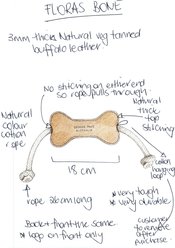 FLORAS BONE
3mm thick Natural veg tanned
buffalo leather
No stitching on either end
so rope pulls through
Natural
colour
cotton
rope
Natural
thick
top
stitching
18cm
rope 36cm long
cotton
hanging
loop
Back + front the same
* Logo on front only
* very tough
* very durable
customer
to remove
after
purchase